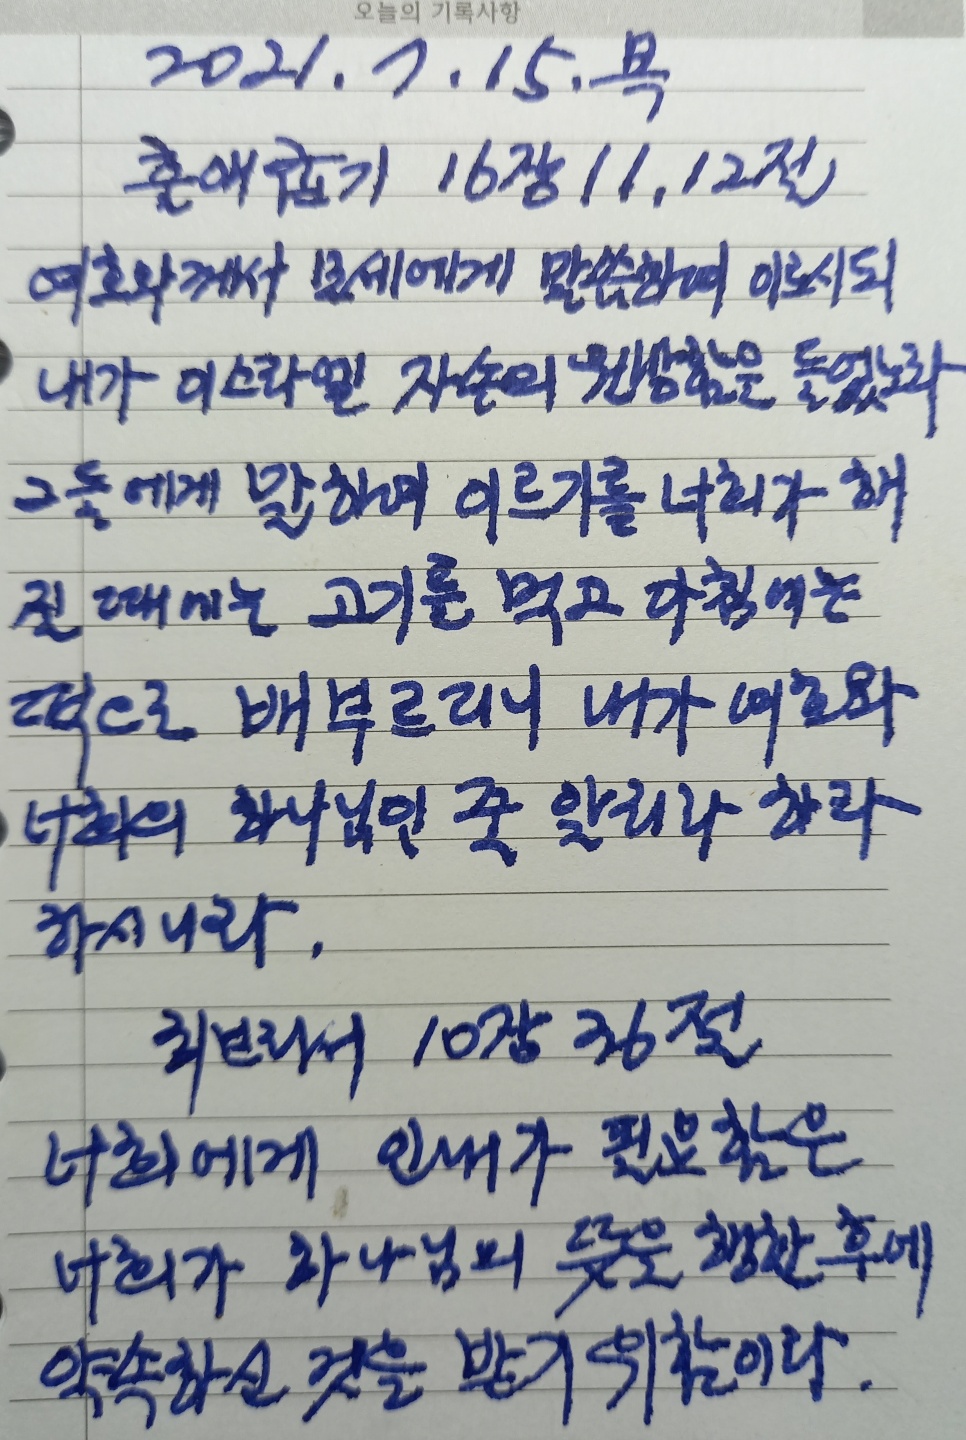 오늘의 기록사항
2021. 7. 15. 목
출애굽기 16장 11, 12절
여호와께서 모세에게 말씀하여 이르시되
내가 이스라엘 자손의 원망함을 들었노라
그들에게 말하여 이르기를 너희가 해
질 때에는 고기를 먹고 아침에는
떡으로 배부르리니 내가 여호와
너희의 하나님인 줄 알리라 하라
하시니라.
히브리서 10장 36절
너희에게 인내가 필요함은
너희가 하나님의 뜻을 행한 후에
약속하신 것을 받기 위함이라.